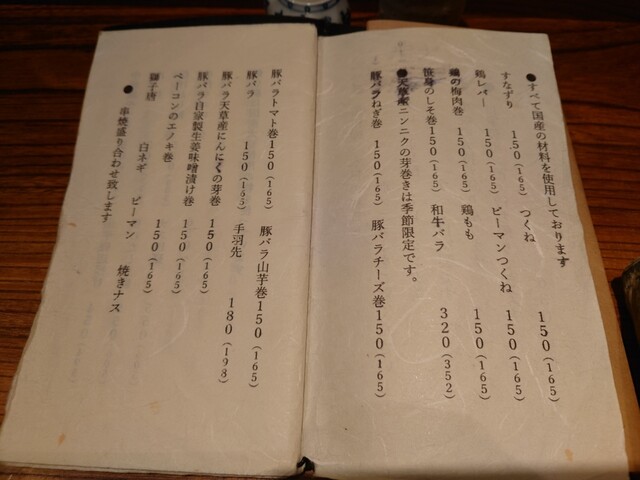 ●すべて国産の材料を使用しております
すなずり 150(165) つくね 150(165)
鶏レバー 150(165) ピーマンつくね 150(165)
鶏の梅肉巻 150(165) 鶏もも 150(165)
笹身のしそ巻150(165) 和牛バラ 320(352)
●天草産ニンニクの芽巻きは季節限定です。
豚バラねぎ巻 150(165) 豚バラチーズ巻150(165)
豚バラトマト巻150(165) 豚バラ山芋巻150(165)
豚バラ 150(165) 手羽先 180(198)
豚バラ天草産にんにくの芽巻 150(165)
豚バラ自家製生姜味噌漬け巻 150(165)
ベーコンのエノキ巻 150(165)
獅子唐 白ネギ ピーマン 焼きナス
● 串焼盛り合わせ致します